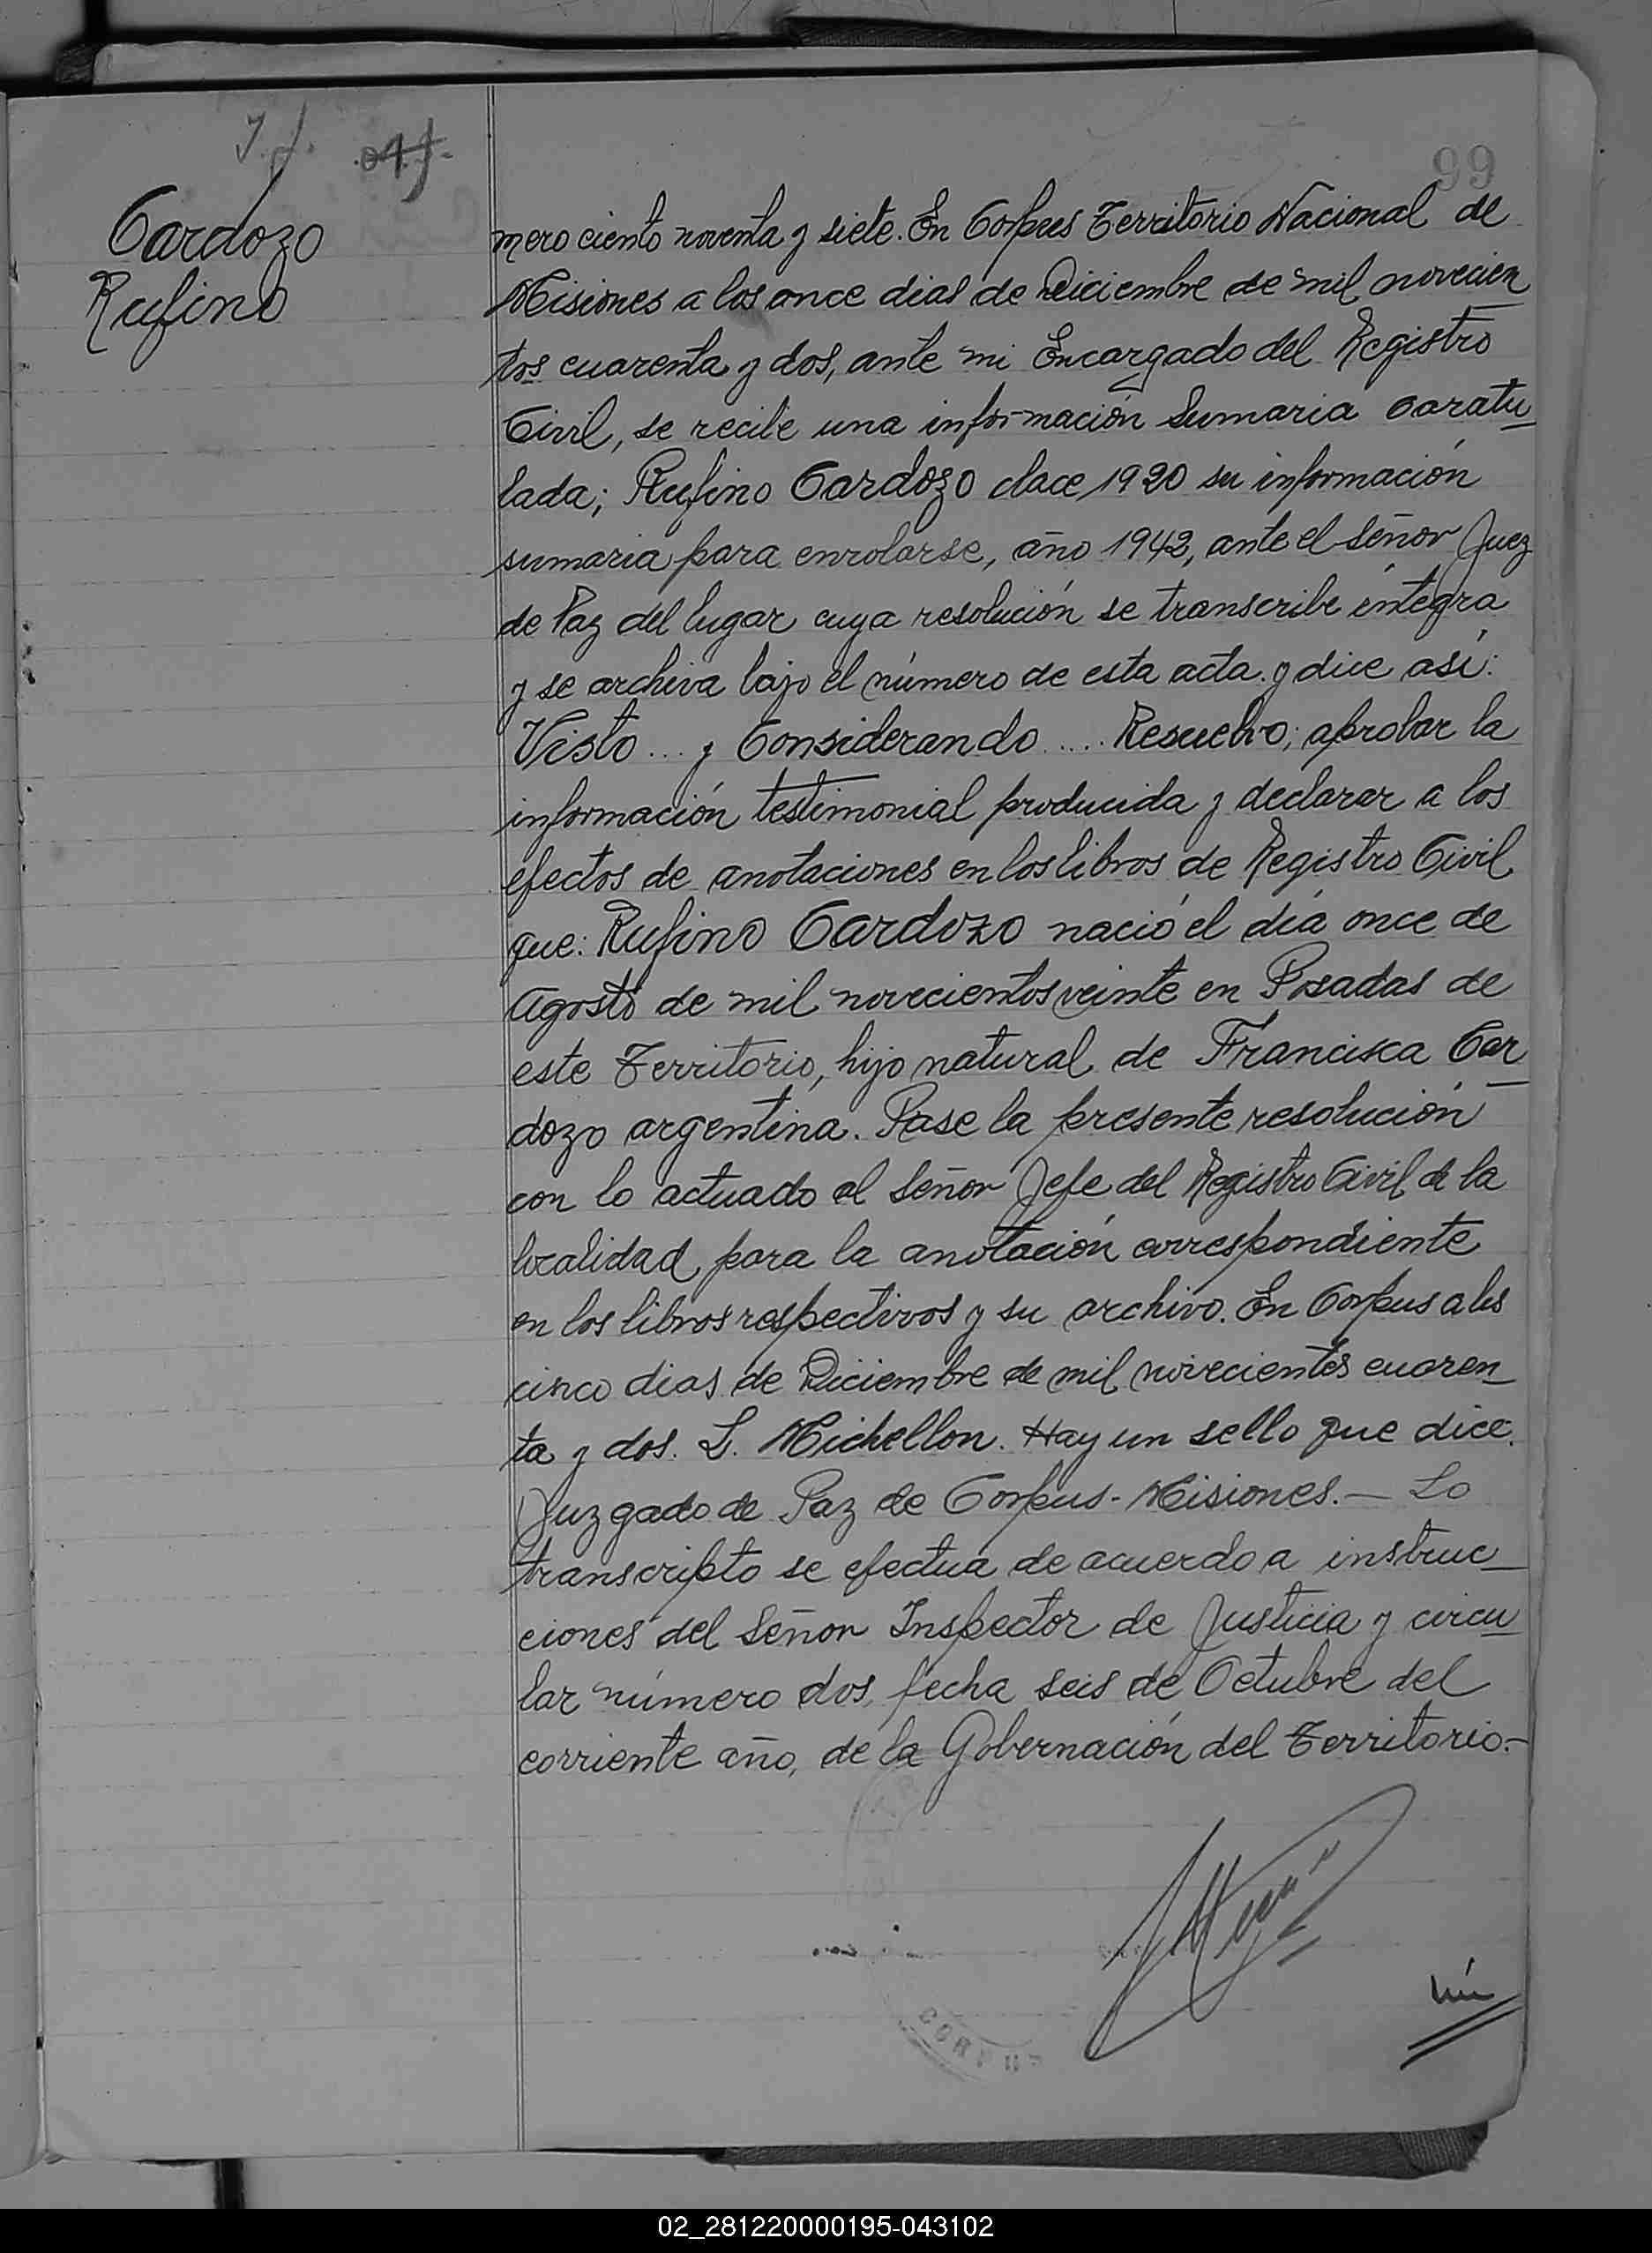 99
Cardozo
Rufino
mero ciento noventa y siete. En Corpus Territorio Nacional de
Misiones a los once dias de Diciembre de mil novecien
tos cuarenta y dos, ante mi Encargado del Registro
Civil, se recibe una información Sumaria caratu
lada; Rufino Cardozo clace 1920 su información
sumaria para enrolarse, año 1942, ante el Señor Juez
de Paz del lugar cuya resolución se transcribe íntegra
y se archiva bajo el número de esta acta y dice así:
Visto ... y Considerando .... Resuelvo; aprobar la
información testimonial producida y declarar a los
efectos de anotaciones en los libros de Registro Civil
que: Rufino Cardozo nació el día once de
Agosto de mil novecientos veinte en Posadas de
este Territorio, hijo natural de Francisca Car
dozo argentina. Pase la presente resolución
con lo actuado al Señor Jefe del Registro Civil de la
localidad para la anotación correspondiente
en los libros respectivos y su archivo. En Corpus a los
cinco dias de Diciembre de mil novecientos cuaren
ta y dos. L. Michellon. Hay un sello que dice:
Juzgado de Paz de Corpus-Misiones.— Lo
transcripto se efectua de acuerdo a instruc
ciones del Señor Inspector de Justicia y circu
lar número dos, fecha seis de Octubre del
corriente año, de la Gobernación del Territorio.-
nú
CORPUS
02_281220000195-043102